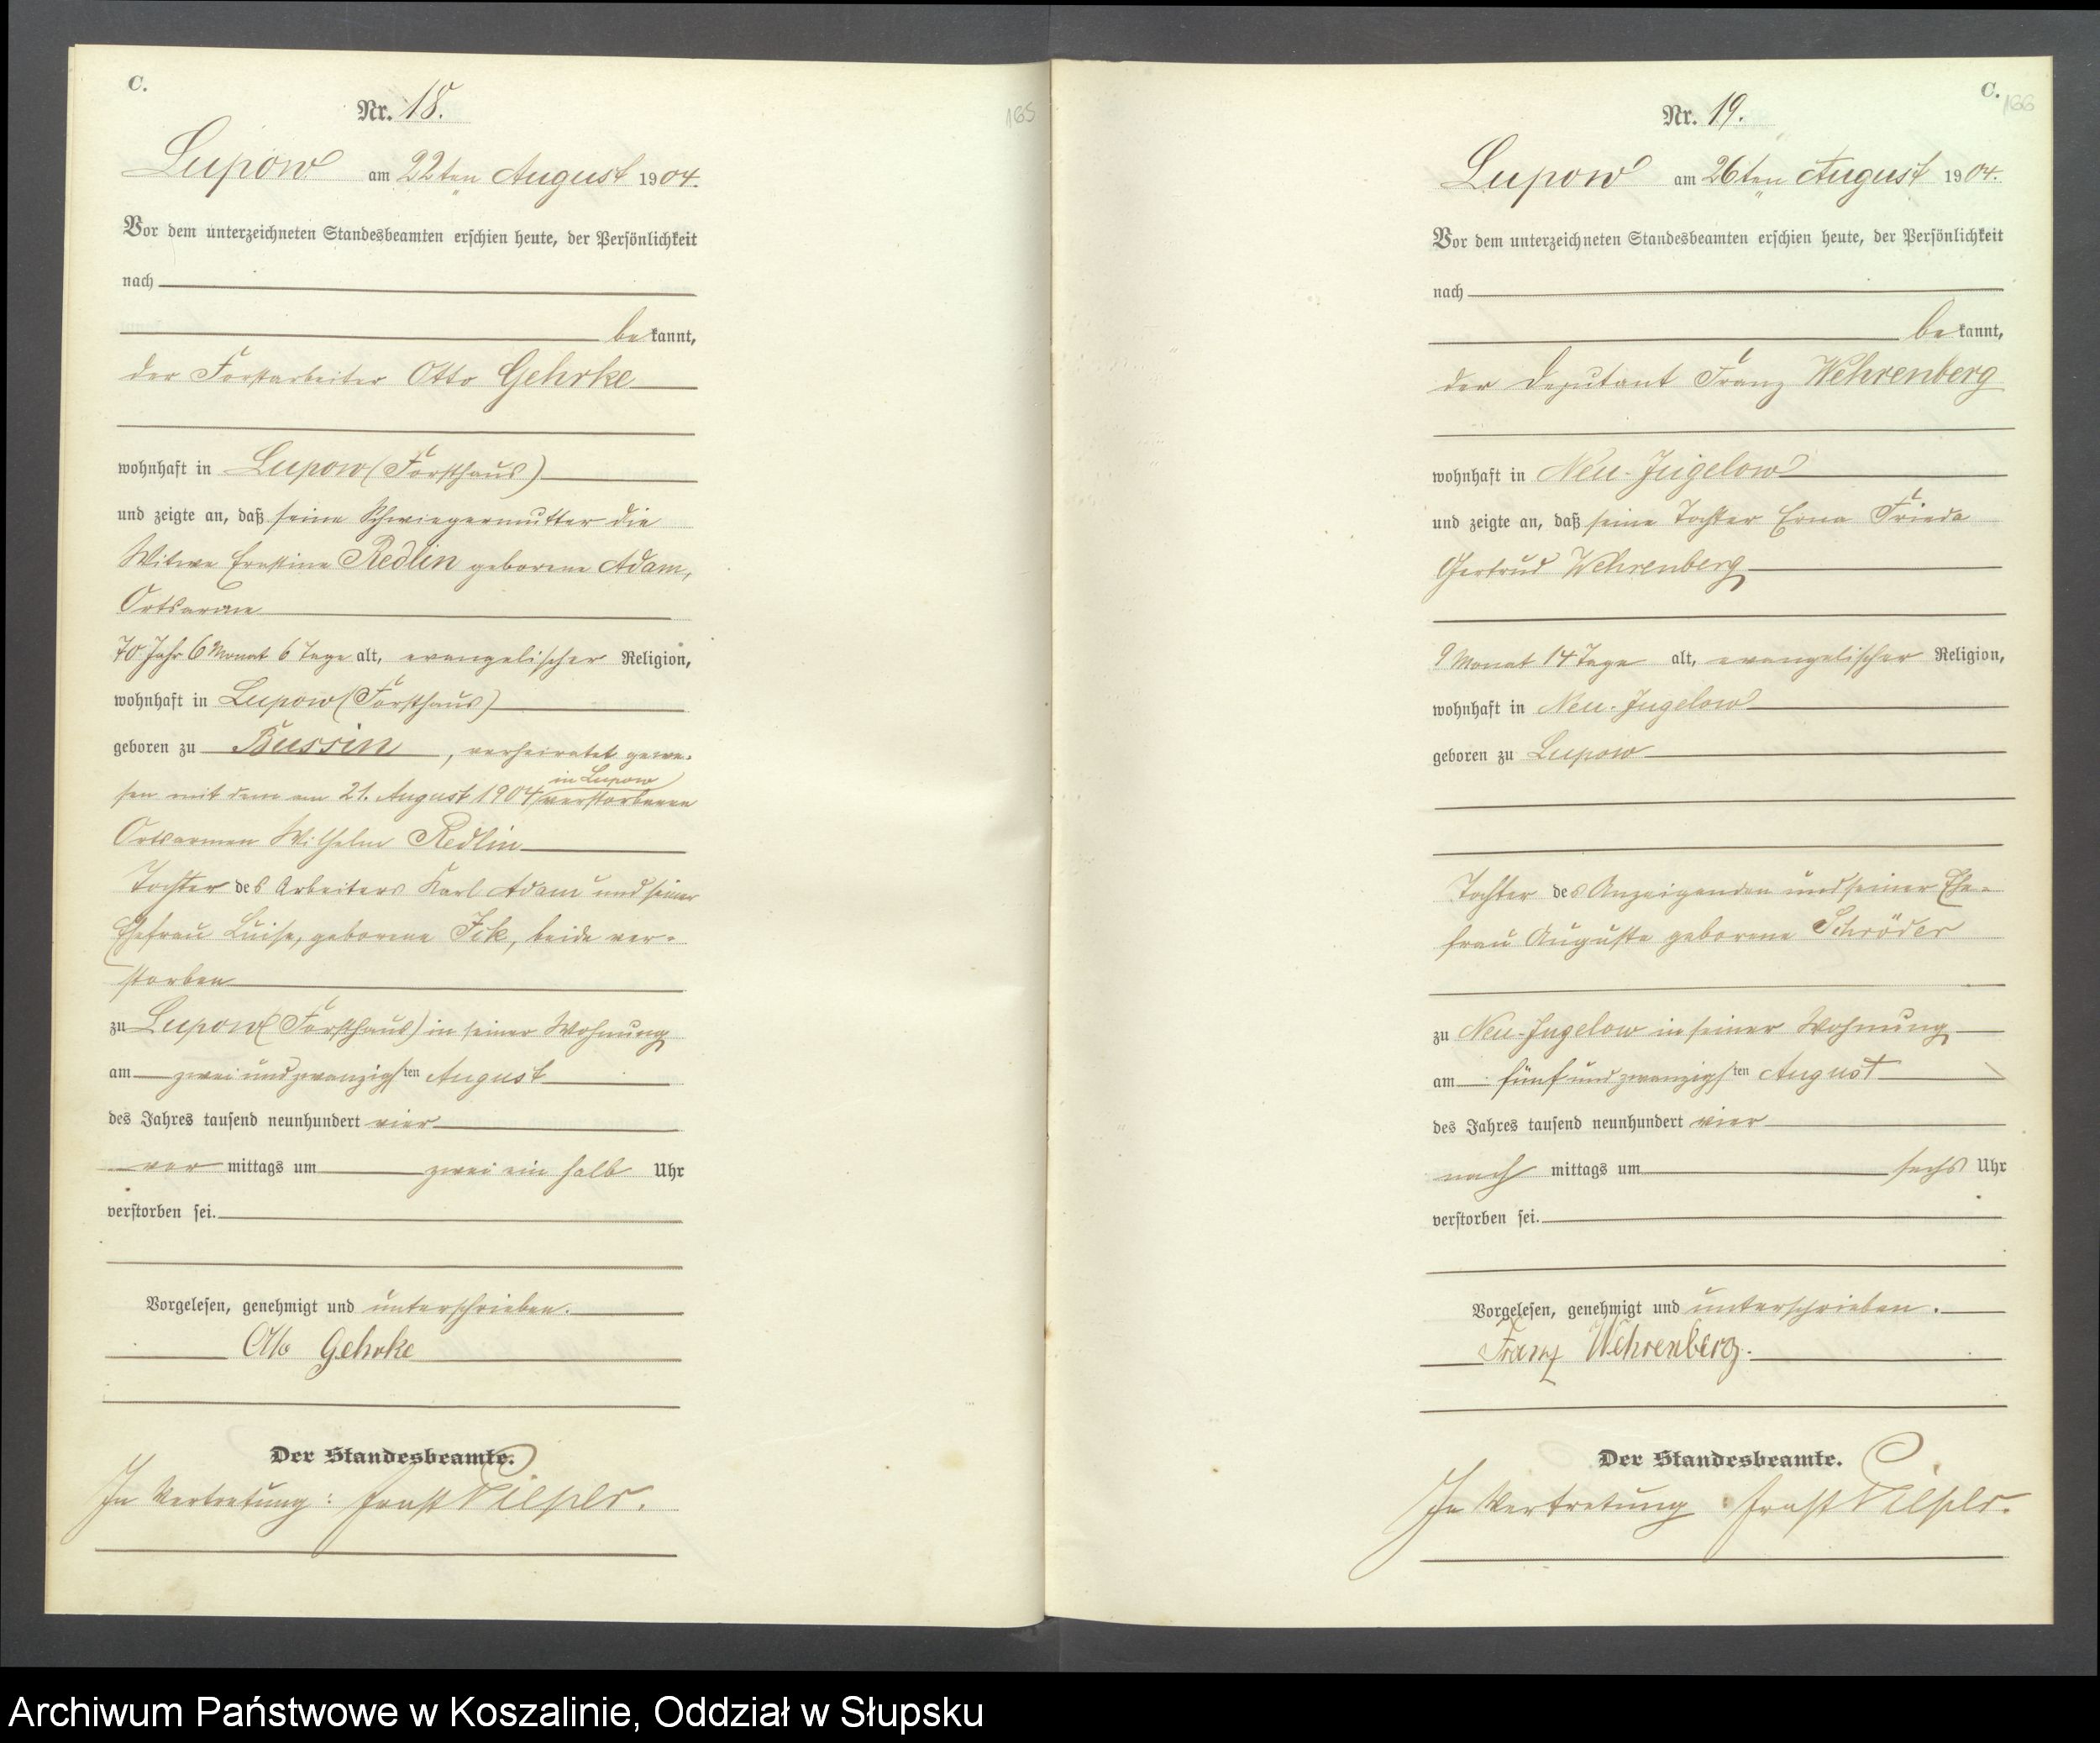 C.
Nr. 18.
165
Lupow am 22ten August 1904.
Vor dem unterzeichneten Standesbeamten erschien heute, der Persönlichkeit
nach
bekannt,
der Forstarbeiter Otto Gehrke
wohnhaft in Lupow (Forsthaus)
und zeigte an, daß seine Schwiegermutter die
Witwe Ernstine Redlin geborene Adam,
Ortsarme
70 Jahr 6 Monat 6 Tage alt, evangelischer Religion,
wohnhaft in Lupow (Forsthaus)
geboren zu Bussin, verheiratet gewe-
in Lupow
sen mit dem am 21. August 1904 verstorbenen
Ortsarmen Wilhelm Redlin
Tochter des Arbeiters Karl Adam und seiner
Ehefrau Luise, geborene Fik, beide ver-
storben
zu Lupow (Forsthaus) in seiner Wohnung
am zwei und zwanzigsten August
des Jahres tausend neunhundert vier
vor mittags um zwei ein halb Uhr
verstorben sei.
Vorgelesen, genehmigt und unterschrieben.
Otto Gehrke
Der Standesbeamte.
In Vertretung: Ernst
C.
166
Nr. 19.
Lupow am 26ten August 1904.
Vor dem unterzeichneten Standesbeamten erschien heute, der Persönlichkeit
nach
bekannt,
der Deputant Franz Wehrenberg
wohnhaft in Neu-Jugelow
und zeigte an, daß seine Tochter Erna Frieda
Gertrud Wehrenberg
9 Monat 14 Tage alt, evangelischer Religion,
wohnhaft in Neu-Jugelow
geboren zu Lupow
Tochter des Anzeigenden und seiner Ehe-
frau Auguste geborene Schröder
zu Neu-Jugelow in seiner Wohnung
am fünf und zwanzigsten August
des Jahres tausend neunhundert vier
nach mittags um sechs Uhr
verstorben sei.
Vorgelesen, genehmigt und unterschrieben.
Franz Wehrenberg.
Der Standesbeamte.
In Vertretung: Ernst
Archiwum Państwowe w Koszalinie, Oddział w Słupsku